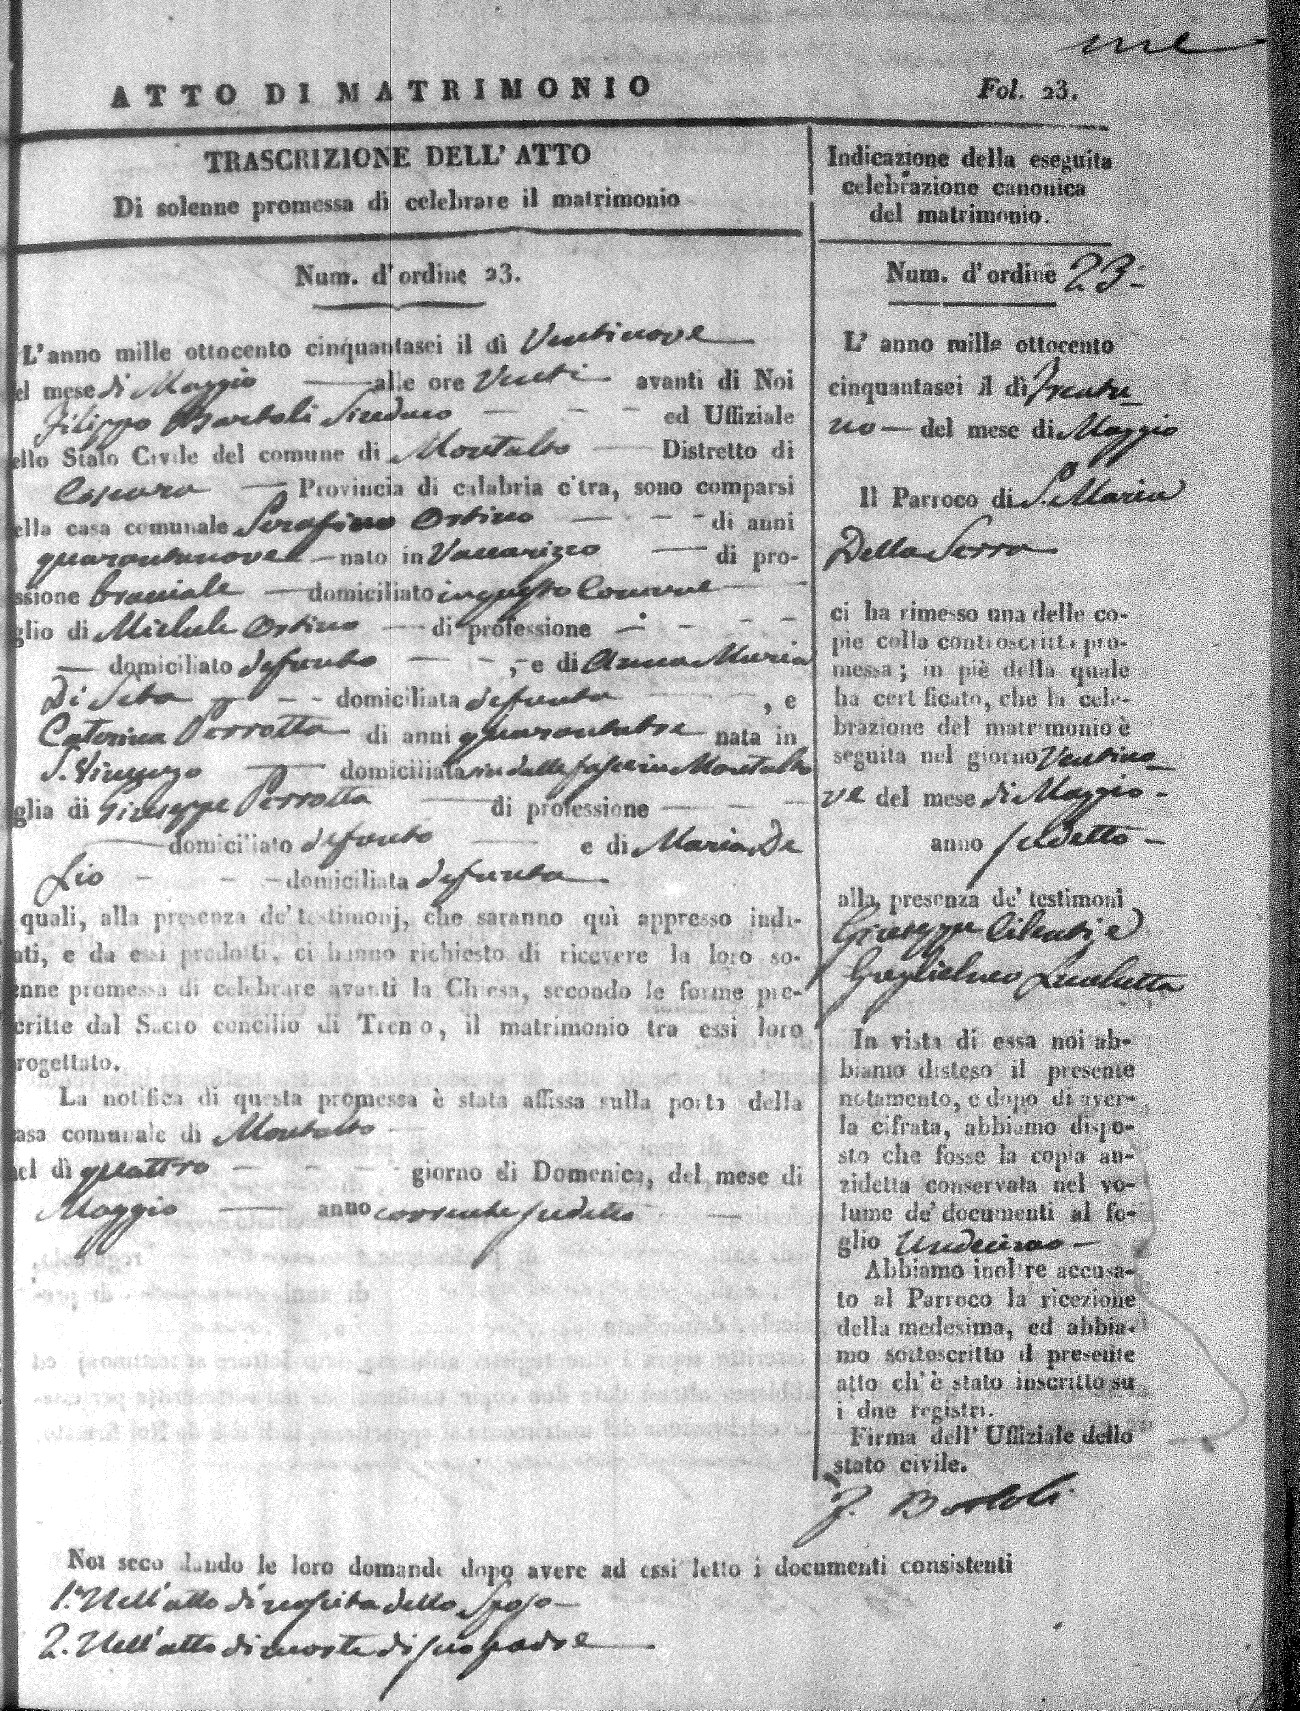 ATTO DI MATRIMONIO
Fol. 23.
TRASCRIZIONE DELL' ATTO
Di solenne promessa di celebrare il matrimonio
Num. d'ordine 23.
L'anno mille ottocento cinquantasei il dì Ventinove
el mese di Maggio alle ore Venti avanti di Noi
Filippo Bartoli Sindaco ed Uffiziale
ello Stato Civile del comune di Montalto Distretto di
Cosenza Provincia di calabria citra, sono comparsi
ella casa comunale Serafino Ortino di anni
quarantanove nato in Vaccarizzo di pro-
ssione bracciale domiciliato in questo Comune
glio di Michele Ortino di professione
domiciliato defunto , e di Anna Maria
Di Seta domiciliata defunta , e
Caterina Perrotta di anni quarantatre nata in
S. Vincenzo domiciliata sin dalle fasce in Montalto
glia di Giuseppe Perrotta di professione
domiciliato defunto e di Maria De
Lio domiciliata defunta
quali, alla presenza de' testimonj, che saranno quì appresso indi-
ati, e da essi prodotti, ci hanno richiesto di ricevere la loro so-
enne promessa di celebrare avanti la Chiesa, secondo le forme pre-
critte dal Sacro concilio di Treno, il matrimonio tra essi loro
rogettato.
La notifica di questa promessa è stata affissa sulla porta della
asa comunale di Montalto
nel dì quattro giorno di Domenica, del mese di
Maggio anno corrente sudetto
Indicazione della eseguita
celebrazione canonica
del matrimonio.
Num. d'ordine 23.
L' anno mille ottocento
cinquantasei il dì Trentu_
no del mese di Maggio
Il Parroco di S. Maria
Della Serra
ci ha rimesso una delle co-
pie colla controscritta pro-
messa ; in piè della quale
ha certificato, che la cele-
brazione del matrimonio è
seguita nel giorno Ventino_
ve del mese di Maggio
anno sudetto
alla presenza de' testimoni
Giuseppe e
Guglielmo
In vista di essa noi ab-
biamo disteso il presente
notamento, e dopo di aver-
la cifrata, abbiamo dispo-
sto che fosse la copia an-
zidetta conservata nel vo-
lume de' documenti al fo-
glio Undecimo
Abbiamo inoltre accusa-
to al Parroco la ricezione
della medesima, ed abbia-
mo sottoscritto il presente
atto ch'è stato inscritto su
i due registri.
Firma dell' Uffiziale dello
stato civile.
F. Bartoli
Noi seco dando le loro domande dopo avere ad essi letto i documenti consistenti
1.° Nell'atto di nascita dello Sposo
2. Nell'atto di morte di suo padre